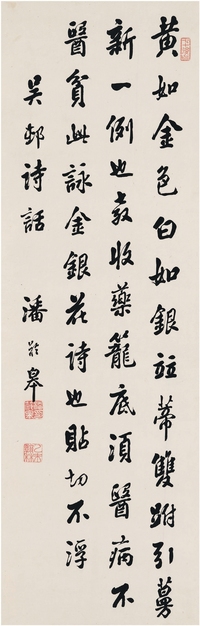 黃如金色白如銀並蒂雙跗引蔓
新一例也教收藥籠底須醫病不
醫貧此詠金銀花詩也貼切不浮
吳邨詩話 潘齡皋